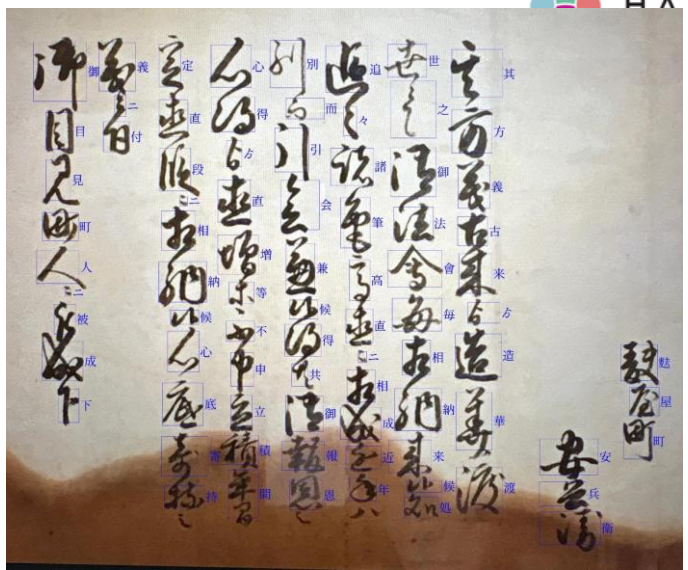 麩屋町
安兵衛
其方義古来ゟ造華渡
世之御法會毎相納来候処
追々諸筆高直ニ相成近年ハ
別而引会兼候得共御報恩と
心得ゟ直増等不申立積年間
定直段ニ相納候心底寄特之
義ニ付
御目見町人ニ被成下